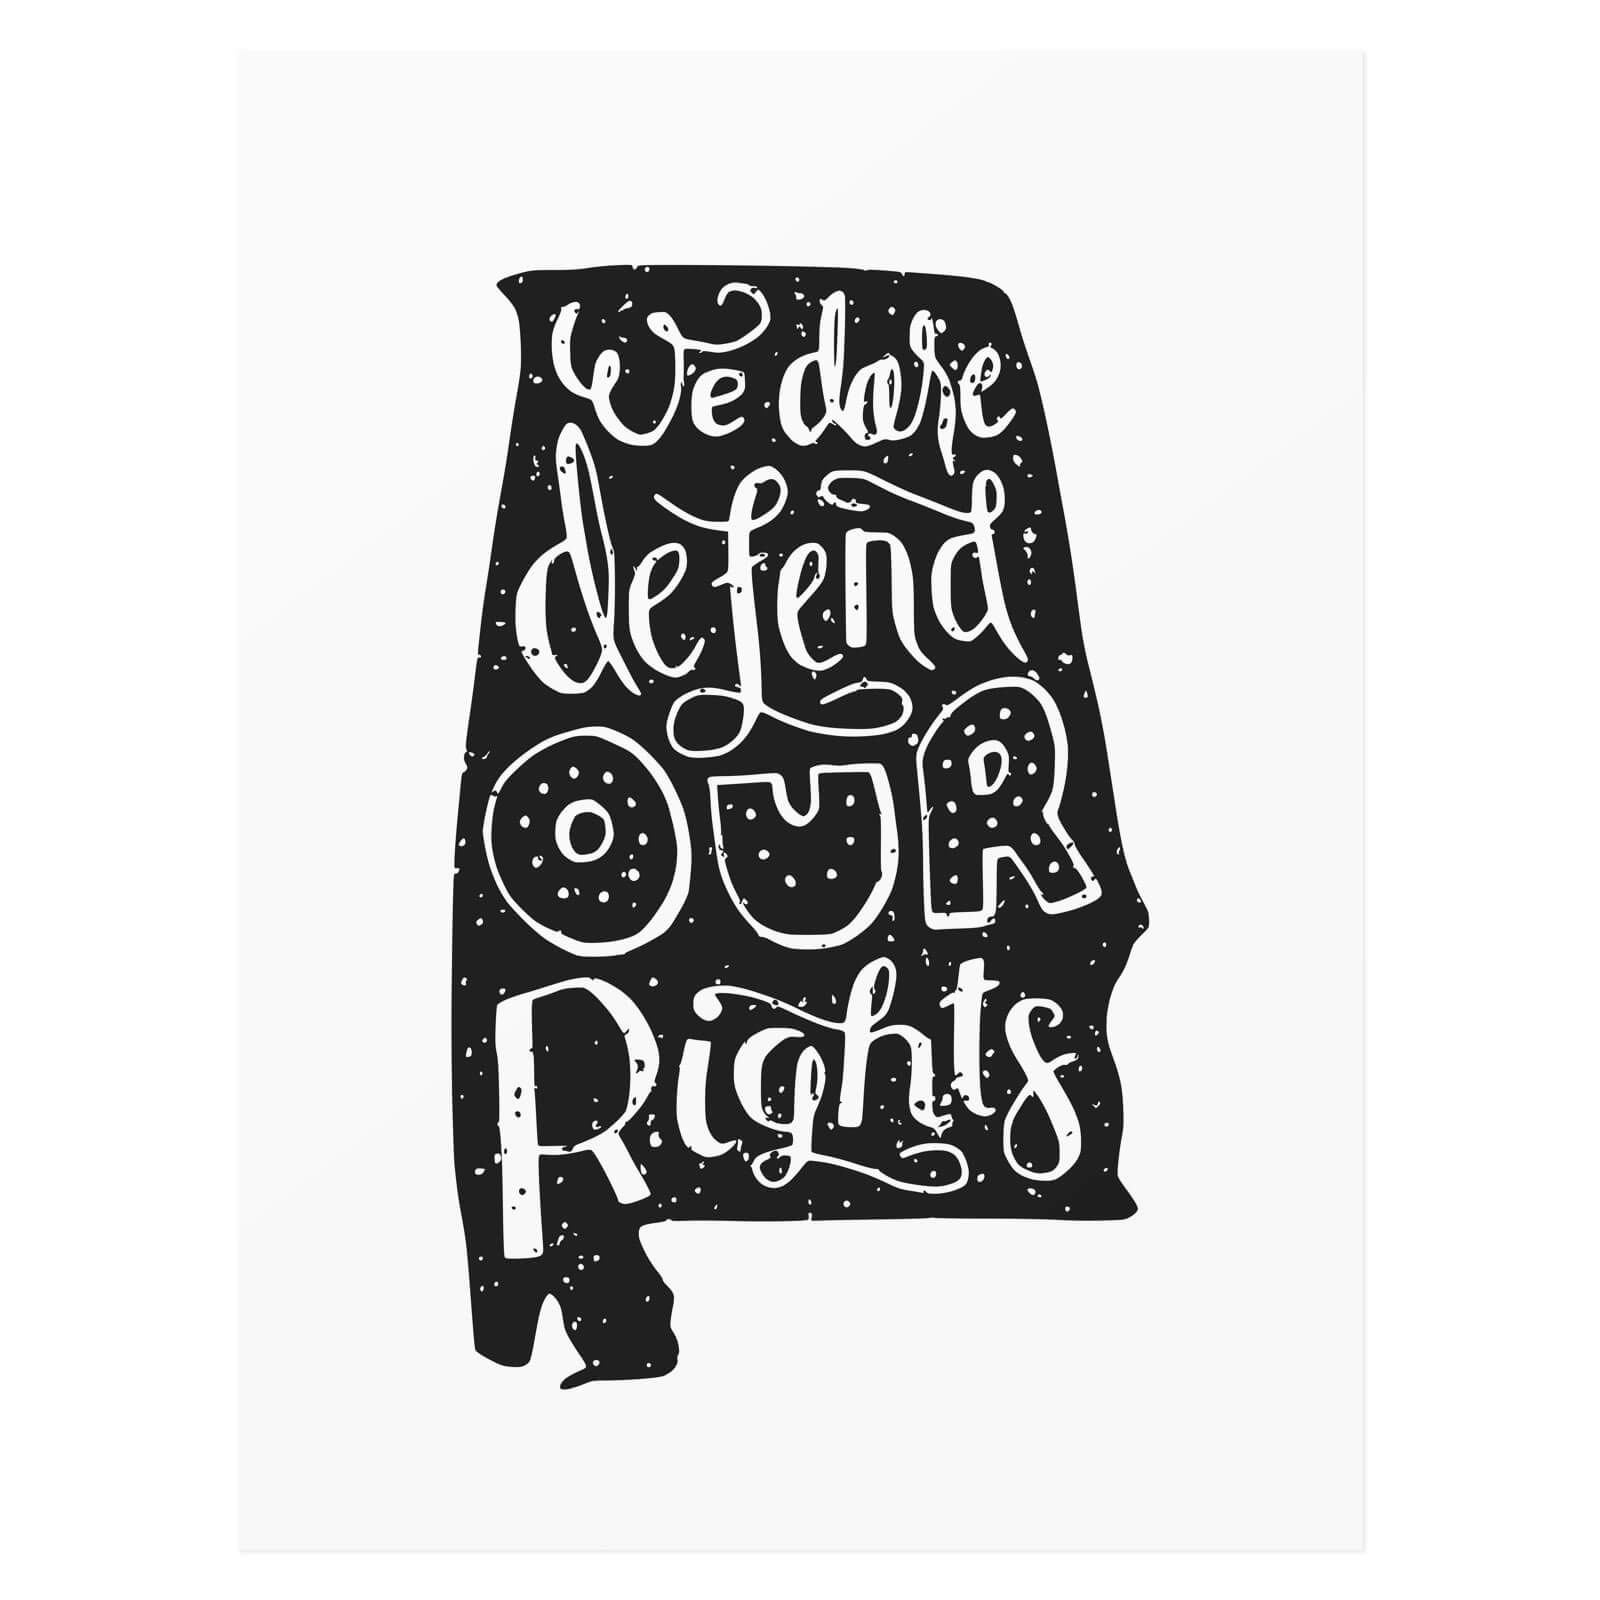 We dare
defend
OUR
Rights